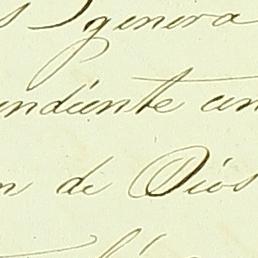 genera
ndiente en
n de Dios